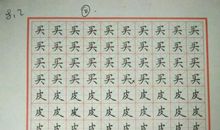 买买买买买买买买买
买买买买买买买买买
买买买买买买买买买
买买买买买买买买买
皮皮皮皮皮皮皮皮皮
皮皮皮皮皮皮皮皮皮
皮皮皮皮皮皮皮皮皮